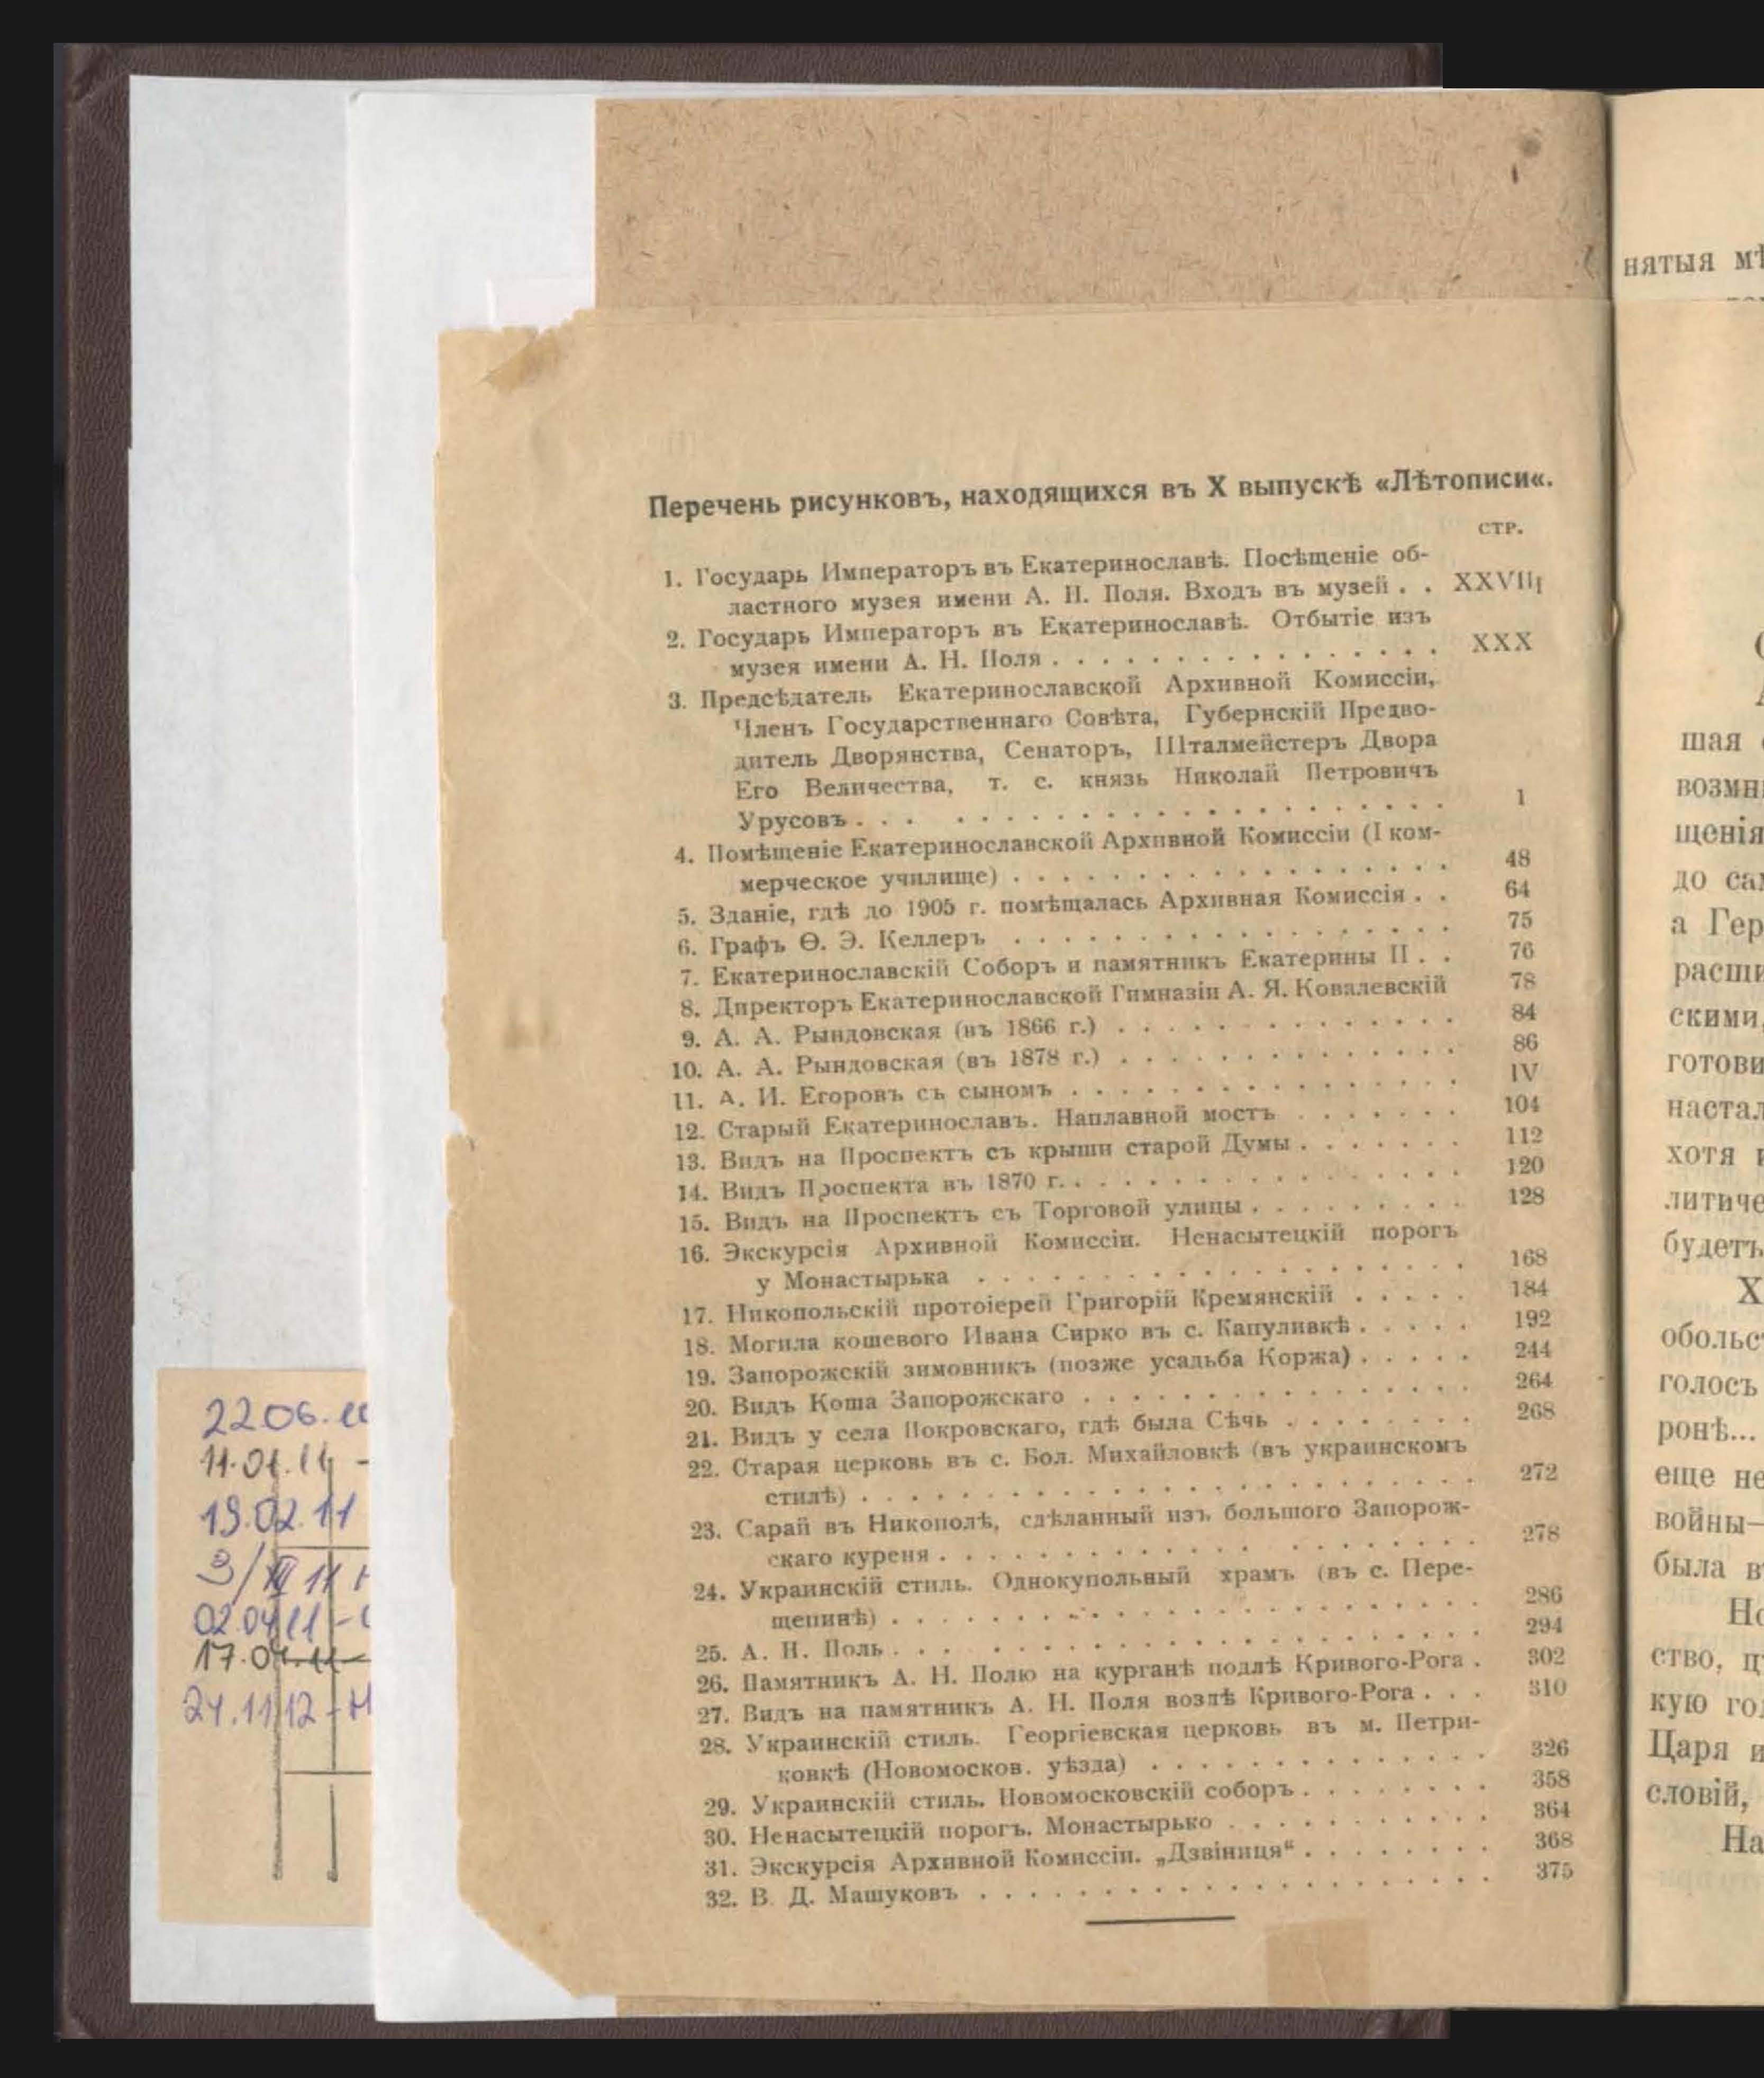 Перечень рисунковъ, находящихся въ X выпускѣ «Лѣтописи“.
стр.
1. Государь Императоръ въ Екатеринославѣ. Посѣщеніе об-
ластного музея имени А. Н. Поля. Входъ въ музей . . XXVIII
2. Государь Императоръ въ Екатеринославѣ. Отбытіе изъ
музея имени А. Н. Поля . . . . . . . . . . . . . . . . XXX
3. Предсѣдатель Екатеринославской Архивной Комиссіи,
Членъ Государственнаго Совѣта, Губернскій Предво-
дитель Дворянства, Сенаторъ, Шталмейстеръ Двора
Его Величества, т. с. князь Николай Петровичъ
Урусовъ . . . . . . . . . . . . . . . . . . . . 1
4. Помѣщеніе Екатеринославской Архивной Комиссіи (I ком-
мерческое училище) . . . . . . . . . . . . . . . . . 48
5. Зданіе, гдѣ до 1905 г. помѣщалась Архивная Комиссія . . 64
6. Графъ Ѳ. Э. Келлеръ . . . . . . . . . . . . . . . . . 75
7. Екатеринославскій Соборъ и памятникъ Екатерины II . . 76
8. Директоръ Екатеринославской Гимназіи А. Я. Ковалевскій 78
9. А. А. Рындовская (въ 1866 г.) . . . . . . . . . . . . . 84
10. А. А. Рындовская (въ 1878 г.) . . . . . . . . . . . . . 86
11. А. И. Егоровъ съ сыномъ . . . . . . . . . . . . . . . IV
12. Старый Екатеринославъ. Наплавной мостъ . . . . . . . 104
13. Видъ на Проспектъ съ крыши старой Думы . . . . . . . 112
14. Видъ Проспекта въ 1870 г. . . . . . . . . . . . . . . . 120
15. Видъ на Проспектъ съ Торговой улицы . . . . . . . . . 128
16. Экскурсія Архивной Комиссіи. Ненасытецкій порогъ
у Монастырька . . . . . . . . . . . . . . . . . . . 168
17. Никопольскій протоіерей Григорій Кремянскій . . . . . 184
18. Могила кошевого Ивана Сирко въ с. Капуливкѣ . . . . . 192
19. Запорожскій зимовникъ (позже усадьба Коржа) . . . . . 244
20. Видъ Коша Запорожскаго . . . . . . . . . . . . . . . 264
21. Видъ у села Покровскаго, гдѣ была Сѣчь . . . . . . . . 268
22. Старая церковь въ с. Бол. Михайловкѣ (въ украинскомъ
стилѣ) . . . . . . . . . . . . . . . . . . . . . . . . 272
23. Сарай въ Никополѣ, сдѣланный изъ большого Запорож-
скаго куреня . . . . . . . . . . . . . . . . . . . . 278
24. Украинскій стиль. Однокупольный храмъ (въ с. Пере-
щепинѣ) . . . . . . . . . . . . . . . . . . . . . . 286
25. А. Н. Поль . . . . . . . . . . . . . . . . . . . . . 294
26. Памятникъ А. Н. Полю на курганѣ подлѣ Кривого-Рога . 302
27. Видъ на памятникъ А. Н. Поля возлѣ Кривого-Рога . . . 310
28. Украинскій стиль. Георгіевская церковь въ м. Петри-
ковкѣ (Новомосков. уѣзда) . . . . . . . . . . . . . . 326
29. Украинскій стиль. Новомосковскій соборъ . . . . . . . . 358
30. Ненасытецкій порогъ. Монастырько . . . . . . . . . . . 364
31. Экскурсія Архивной Комиссіи. „Дзвіниця“ . . . . . . . . 368
32. В. Д. Машуковъ . . . . . . . . . . . . . . . . . . . . . 375
19.02.11
3/III 11
02.04.11
24.11.12 - Н
нятыя
шая
возмн
щенія
до сам
а Гер
расши
скими,
готови
настал
хотя
литиче
будетъ
Х
обольс
голосъ
ронѣ...
еще не
войны—
была в
Но
ство, ц
кую го
Царя и
словій,
На